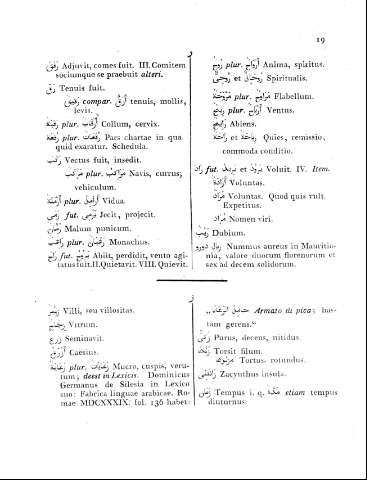 19
ر
رَفَقَ Adjuvit, comes fuit. III. Comitem
sociumque se praebuit alteri.
رَقَّ Tenuis fuit.
رَقِيق compar. أَرَقّ tenuis, mollis,
levis.
رَقَبَة plur. رِقَاب Collum, cervix.
رُقْعَة plur. رُقْعَات Pars chartae in qua
quid exaratur. Schedula.
رَكِبَ Vectus fuit, insedit.
مَرْكَب plur. مَرَاكِب Navis, currus;
vehiculum.
أَرْمَلَة plur. أَرَامِل Vidua.
رَمَى fut. يَرْمِى Jecit, projecit.
رُمَّان Malum punicum.
رَاهِب plur. رُهْبَان Monachus.
رَاح fut. يَرُوح Abiit, perdidit, vento agi-
tatus fuit. II. Quietavit. VIII. Quievit.
رُوح plur. أَرْوَاح Anima, spiritus.
et Spiritualis.
مِرْوَحَة plur. مَرَاوِح Flabellum.
رِيح plur. أَرْيَاح Ventus.
Abiens.
رَاحَة et Quies, remissio,
commoda conditio.
رَاد fut. يَرُود et يَرِيد Voluit. IV. Item.
إِرَادَة Voluntas.
مُرَاد Voluntas. Quod quis vult.
Expetitus.
مُرَاد Nomen viri.
رَيْب Dubium.
ريال دورو Nummus aureus in Mauritio-
nia, valore duorum florenorum et
sex ad decem solidorum.
ز
Villi, seu villositas.
Vitrum.
زَرَعَ Seminavit.
أَزْرَق Caesius.
plur. Mucro, cuspis, veru-
tum; deest in Lexicis. Dominicus
Germanus de Silesia in Lexico
suo: Fabrica linguae arabicae. Ro-
mae MDCXXXIX. fol. 136 habet:
Armato di pica; has-
tam gerens."
Purus, decens, nitidus.
Torsit filum.
Tortus. rotundus.
Zacynthus insula.
زَمَان Tempus i. q. مُدَّة etiam tempus
diuturnus.